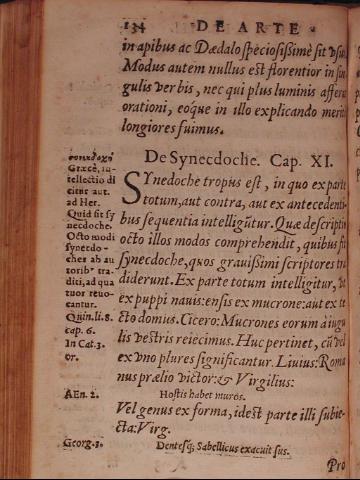 134 DE ARTE
in apibus ac Dædalo speciosissimè sit vsus
Modus autem nullus est florentior in sin
gulis verbis, nec qui plus luminis afferat
orationi, eoque in illo explicando merito
longiores fuimus.
De Synecdoche. Cap. XI.
SYnedoche tropus est, in quo ex parte
totum, aut contra, aut ex antecedenti
bus sequentia intelligũtur. Quæ descriptio
octo illos modos comprehendit, quibus fit
synecdoche, quos grauissimi scriptores tra
diderunt. Ex parte totum intelligitur, vt
ex puppi nauis: ensis ex mucrone: aut ex te
cto domus. Cicero: Mucrones eorum à iugu
lis vestris reiecimus. Huc pertinet, cũ vel
ex vno plures significantur. Liuius: Roma
nus prælio victor: & Virgilius:
Hostis habet muros.
Vel genus ex forma, id est parte illi subie-
cta: Virg.
Dentesq; Sabellicus exacuit sus.
Pro
συνεκδοχὴ
Græcè, in-
tellectio di
citur aut.
ad Her.
Quid sit sy
necdoche.
Octo modi
synecdo-
ches ab au
toribᵒ tra-
diti, ad qua
tuor reuo-
cantur.
Quin. li. 8.
cap. 6.
In Cat. 3.
or.
AEn. 2.
Georg. 3.